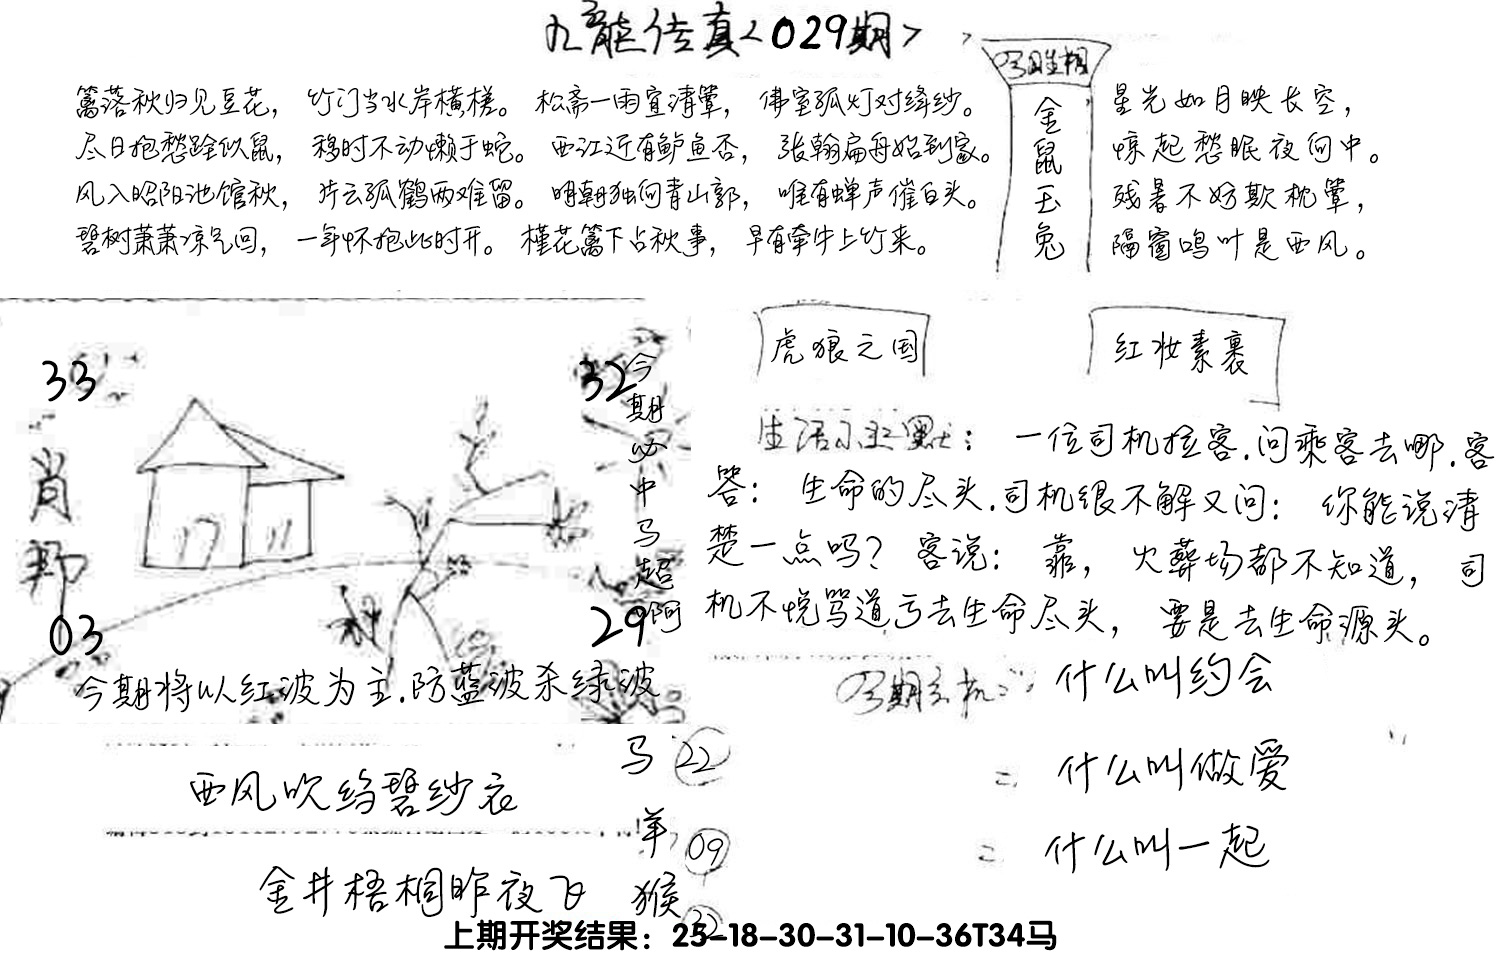 九龙传真<029期>
篱落秋归见豆花，竹门当水岸横槎。松斋一雨宜清簟，佛室孤灯对绛纱。
尽日抱愁跧似鼠，移时不动懒于蛇。西江近有鲈鱼否，张翰扁舟始到家。
风入昭阳池馆秋，片云孤鹤两难留。明朝独向青山郭，唯有蝉声催白头。
碧树萧萧凉气回，一年怀抱此时开。槿花篱下占秋事，早有牵牛上竹来。
金鼠玉兔
星光如月映长空，
惊起愁眠夜向中。
残暑不好欺枕簟，
隔窗鸣叶是西风。
33
32
肖
03
29
今期必中马超啊
今期将以红波为主.防蓝波杀绿波
虎狼之国
红妆素裹
生活小幽默：一位司机拉客.问乘客去哪.客
答：生命的尽头.司机很不解又问：你能说清
楚一点吗？客说：靠，火葬场都不知道，司
机不悦骂道亏去生命尽头，要是去生命源头。
今期玄机一：什么叫约会
二、什么叫做爱
三、什么叫一起
西风吹绉碧纱衣
金井梧桐昨夜飞
马 22
羊 09
猴 32
上期开奖结果：25-18-30-31-10-36T34马